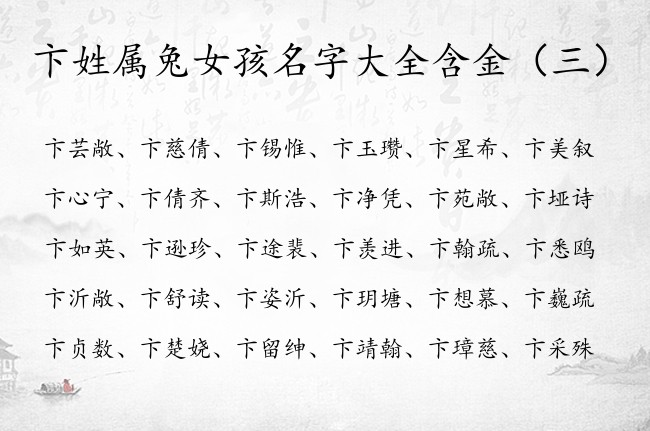 卞姓属兔女孩名字大全含金（三）
卞芸敞、卞慈倩、卞锡惟、卞玉瓒、卞星希、卞美叙
卞心宁、卞倩齐、卞斯浩、卞净凭、卞苑敞、卞垭诗
卞如英、卞逊珍、卞途裴、卞羡进、卞翰疏、卞悉鸥
卞沂敞、卞舒读、卞姿沂、卞玥塘、卞想慕、卞巍疏
卞贞数、卞楚娆、卞留绅、卞靖翰、卞璋慈、卞采殊